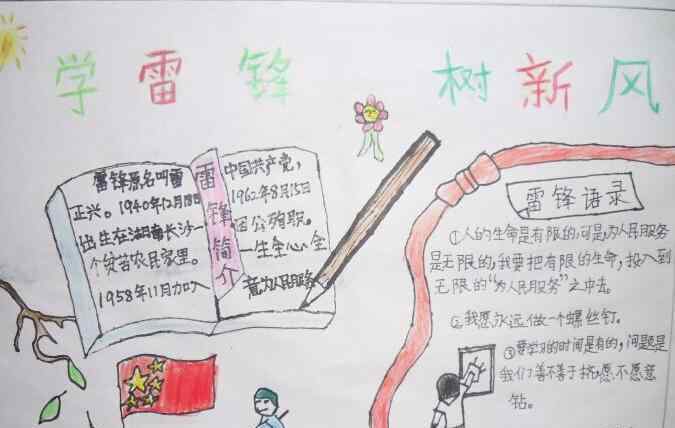 学雷锋 树新风
雷锋原名叫雷
正兴。1940年12月18日
出生在湖南长沙一
个贫苦农民家里。
1958年11月加入
雷锋简介
中国共产党，
1962年8月15日
因公殉职。
一生全心全
意为人民服务
雷锋语录
①人的生命是有限的，可是，为人民服务
是无限的，我要把有限的生命，投入到
无限的“为人民服务”之中去。
②我愿永远做一个螺丝钉。
③要学习的时间是有的，问题是
我们善不善于挤，愿不愿意
钻。